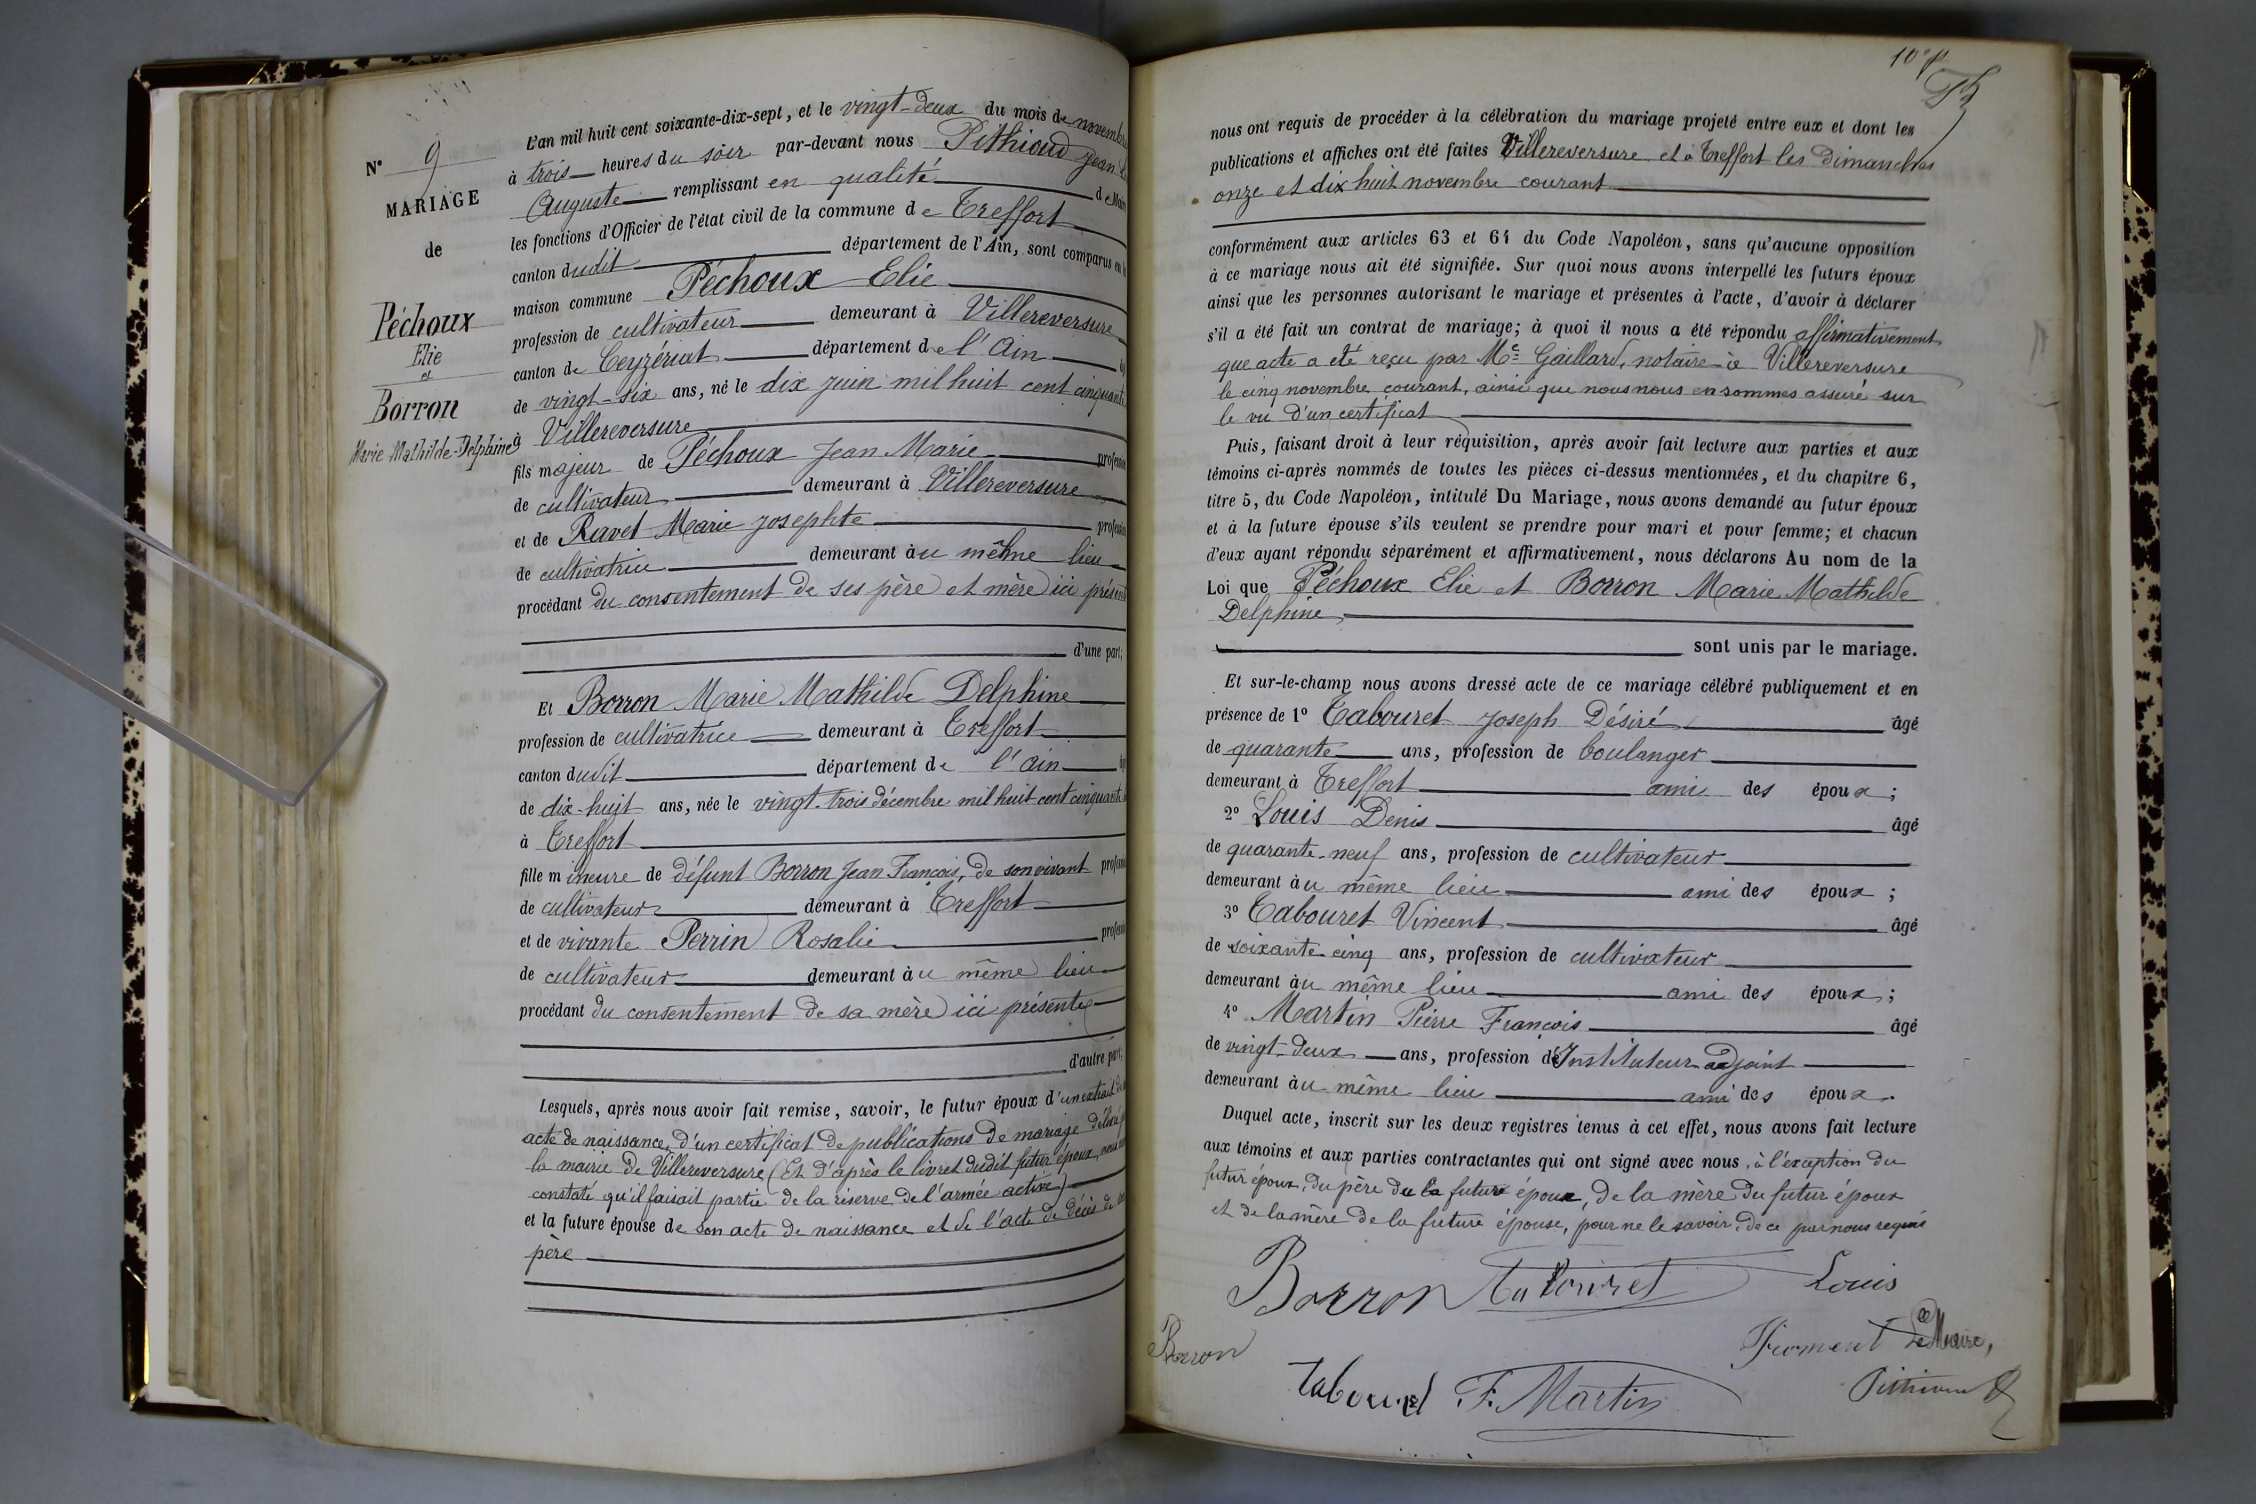 N° 9
MARIAGE
de
Péchoux
Elie
et
Borron
Marie Mathilde Delphine
L'an mil huit cent soixante-dix-sept, et le vingt-deux du mois de novembre
à trois heures du soir par-devant nous Pithioud Jean
Auguste remplissant en qualité de Maire
les fonctions d'Officier de l'état civil de la commune de Treffort
canton dudit département de l'Ain, sont comparus en la
maison commune Péchoux Elie
profession de cultivateur demeurant à Villereversure
canton de Ceyzériat département de l'Ain
de vingt-six ans, né le dix juin mil huit cent cinquante
à Villereversure
fils majeur de Péchoux Jean Marie profession
de cultivateur demeurant à Villereversure
et de Ravet Marie Josephte profession
de cultivatrice demeurant au même lieu
procédant du consentement de ses père et mère ici présents
d'une part;
Et Borron Marie Mathilde Delphine
profession de cultivatrice demeurant à Treffort
canton dudit département de l'Ain
de dix-huit ans, née le vingt-trois décembre mil huit cent cinquante
à Treffort
fille mineure de défunt Borron Jean François, de son vivant profession
de cultivateur demeurant à Treffort
et de vivante Perrin Rosalie profession
de cultivateur demeurant au même lieu
procédant du consentement de sa mère ici présente
d'autre part;
Lesquels, après nous avoir fait remise, savoir, le futur époux d'un extrait de
acte de naissance, d'un certificat de publications de mariage délivré
la mairie de Villereversure (Et d'après le livret dudit futur époux, nous
constaté qu'il faisait partie de la réserve de l'armée active)
et la future épouse de son acte de naissance et de l'acte de décès de
père
nous ont requis de procéder à la célébration du mariage projeté entre eux et dont les
publications et affiches ont été faites Villereversure et à Treffort les dimanches
onze et dix huit novembre courant
conformément aux articles 63 et 64 du Code Napoléon, sans qu'aucune opposition
à ce mariage nous ait été signifiée. Sur quoi nous avons interpellé les futurs époux
ainsi que les personnes autorisant le mariage et présentes à l'acte, d'avoir à déclarer
s'il a été fait un contrat de mariage; à quoi il nous a été répondu affirmativement
que acte a été reçu par Me Gaillard, notaire à Villereversure
le cinq novembre courant, ainsi que nous nous en sommes assuré sur
le vu d'un certificat
Puis, faisant droit à leur réquisition, après avoir fait lecture aux parties et aux
témoins ci-après nommés de toutes les pièces ci-dessus mentionnées, et du chapitre 6,
titre 5, du Code Napoléon, intitulé Du Mariage, nous avons demandé au futur époux
et à la future épouse s'ils veulent se prendre pour mari et pour femme; et chacun
d'eux ayant répondu séparément et affirmativement, nous déclarons Au nom de la
Loi que Péchoux Elie et Borron Marie Mathilde
Delphine
sont unis par le mariage.
Et sur-le-champ nous avons dressé acte de ce mariage célébré publiquement et en
présence de 1° Tabouret Joseph Désiré âgé
de quarante ans, profession de boulanger
demeurant à Treffort ami des époux;
2° Louis Denis âgé
de quarante-neuf ans, profession de cultivateur
demeurant au même lieu ami des époux;
3° Tabouret Vincent âgé
de soixante cinq ans, profession de cultivateur
demeurant au même lieu ami des époux;
4° Martin Pierre François âgé
de vingt-deux ans, profession de Instituteur adjoint
demeurant au même lieu ami des époux.
Duquel acte, inscrit sur les deux registres tenus à cet effet, nous avons fait lecture
aux témoins et aux parties contractantes qui ont signé avec nous, à l'exception du
futur époux, du père du futur époux, de la mère du futur époux
et de la mère de la future épouse, pour ne le savoir, de ce par nous requis
Borron Tabouret Louis
Borron Froment Le Maire,
Tabouret F. Martin Pithioud